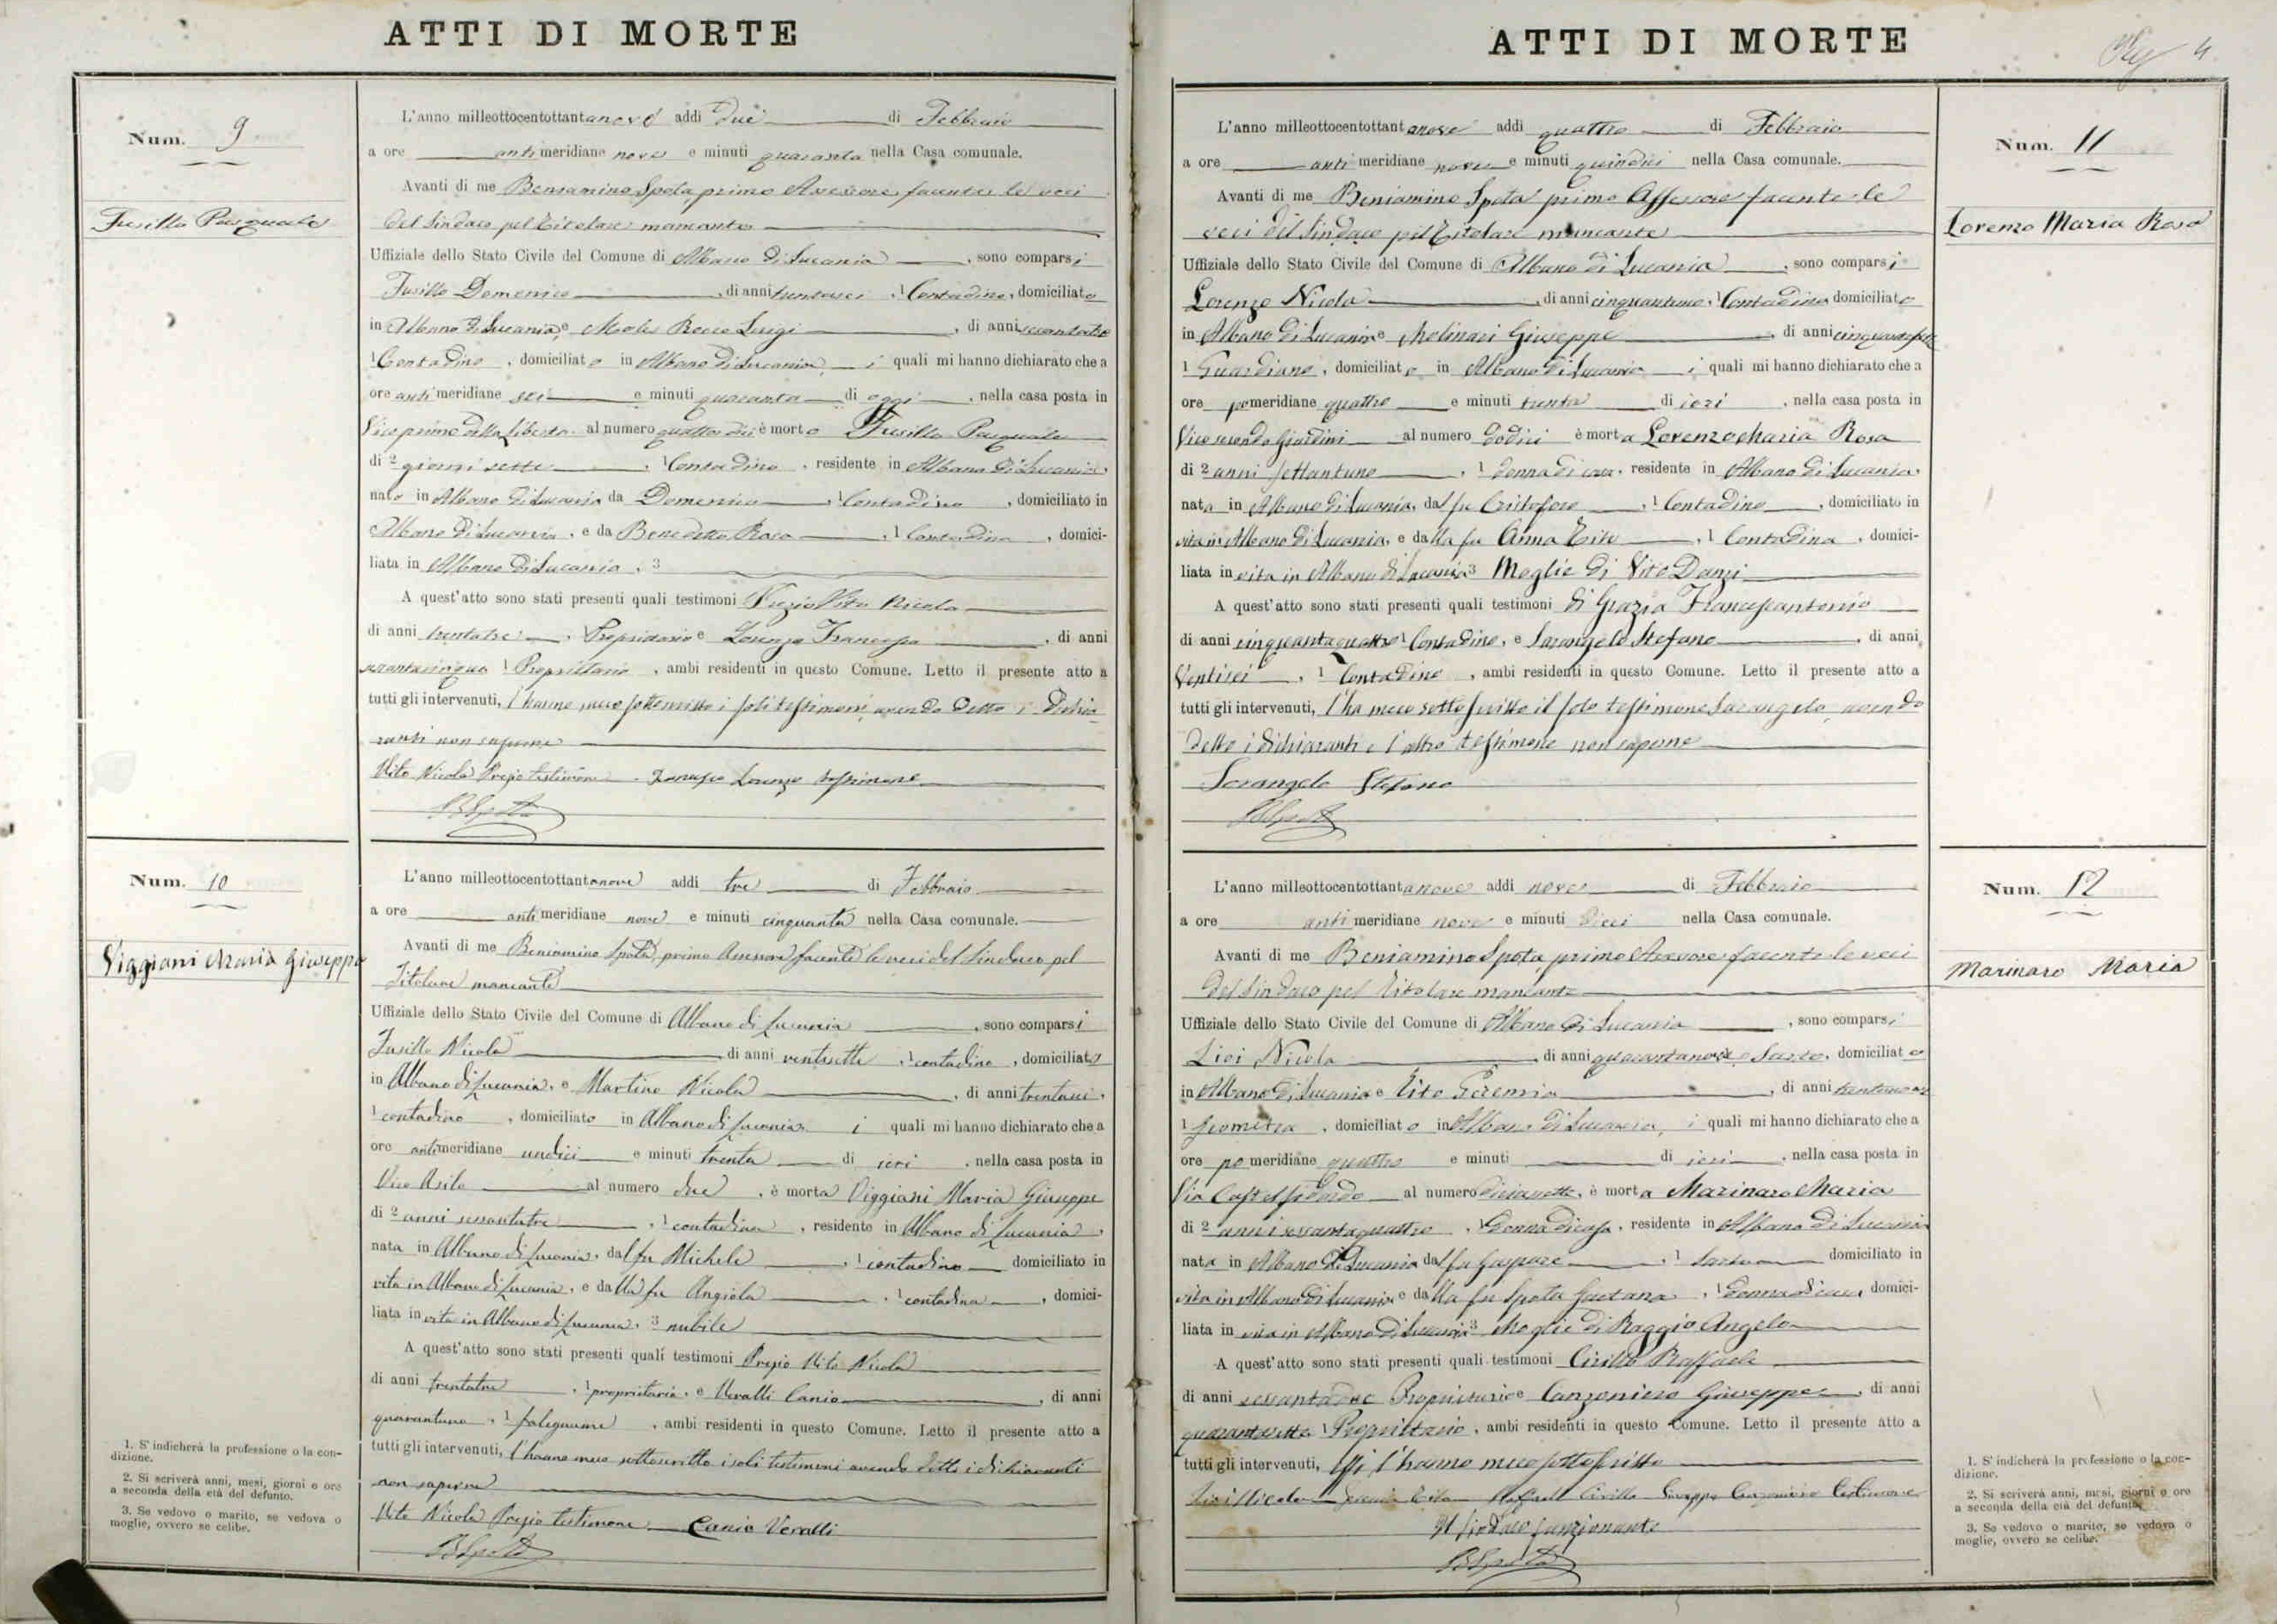 ATTI DI MORTE
Num. 9
Fusillo Pasquale
L'anno milleottocentottantanove addì due di Febbraio
a ore antimeridiane nove e minuti quaranta nella Casa comunale.
Avanti di me Beniamino Spota, primo Assessore facente le veci
del Sindaco pel titolare mancante
Uffiziale dello Stato Civile del Comune di Albano di Lucania, sono comparsi
Fusillo Domenico, di anni trentasei, 1 Contadino, domiciliato
in Albano di Lucania, e Mole Rocco Luigi, di anni
1 Contadino, domiciliato in Albano di Lucania, i quali mi hanno dichiarato che a
ore antimeridiane sei e minuti quaranta di oggi, nella casa posta in
Vico primo della Libertà al numero è morto Fusillo Pasquale
di 2 giorni sette, 1 Contadino, residente in Albano di Lucania,
nato in Albano di Lucania da Domenico, 1 Contadino, domiciliato in
Albano di Lucania, e da Benedetto Rosa, 1 Contadina, domici-
liata in Albano di Lucania. 3
A quest'atto sono stati presenti quali testimoni Pregio Vito Nicola
di anni trentatre, Proprietario e Lorenzo Francesco, di anni
sessantacinque 1 Proprietario, ambi residenti in questo Comune. Letto il presente atto a
tutti gli intervenuti, l'hanno meco sottoscritto i soli testimoni avendo detto i dichia-
ranti non sapere
Vito Nicola Pregio testimone Francesco Lorenzo testimone
BSpota
Num. 10
Viggiani Maria Giuseppa
L'anno milleottocentottantanove addì tre di Febbraio
a ore antimeridiane nove e minuti cinquanta nella Casa comunale.
Avanti di me Beniamino Spota, primo Assessore facente le veci del Sindaco pel
titolare mancante
Uffiziale dello Stato Civile del Comune di Albano di Lucania, sono comparsi
Fusillo Nicola di anni ventisette, 1 contadino, domiciliato
in Albano di Lucania, e Martino Nicola, di anni trentasei,
1 contadino, domiciliato in Albano di Lucania i quali mi hanno dichiarato che a
ore antimeridiane undici e minuti trenta di ieri, nella casa posta in
Vico Asilo al numero due, è morta Viggiani Maria Giuseppa
di 2 anni sessantatre, 1 contadina, residente in Albano di Lucania,
nata in Albano di Lucania, dal fu Michele, 1 contadino domiciliato in
vita in Albano di Lucania, e dalla fu Angiola, 1 contadina, domici-
liata in vita in Albano di Lucania. 3 nubile
A quest'atto sono stati presenti quali testimoni Pregio Vito Nicola
di anni trentatre, 1 proprietario, e Veralli Canio, di anni
quarantuno, 1 falegname, ambi residenti in questo Comune. Letto il presente atto a
tutti gli intervenuti, l'hanno meco sottoscritto i soli testimoni avendo detto i dichiaranti
non sapere
Vito Nicola Pregio testimone Canio Veralli
BSpota
1. S'indicherà la professione o la con-
dizione.
2. Si scriverà anni, mesi, giorni o ore
a seconda della età del defunto.
3. Se vedovo o marito, se vedova o
moglie, ovvero se celibe.
ATTI DI MORTE
4
Num. 11
Lorenzo Maria Rosa
L'anno milleottocentottantanove addì quattro di Febbraio
a ore antimeridiane nove e minuti quindici nella Casa comunale.
Avanti di me Beniamino Spota primo Assessore facente le
veci del Sindaco pel titolare mancante
Uffiziale dello Stato Civile del Comune di Albano di Lucania, sono comparsi
Lorenzo Nicola, di anni cinquantuno, 1 Contadino domiciliato
in Albano di Lucania e Molinari Giuseppe di anni cinquantasette
1 Guardiano, domiciliato in Albano di Lucania i quali mi hanno dichiarato che a
ore pomeridiane quattro e minuti trenta di ieri, nella casa posta in
Vico secondo Giardini al numero dodici è morta Lorenzo Maria Rosa
di 2 anni settantuno, 1 donna di casa, residente in Albano di Lucania,
nata in Albano di Lucania, dal fu Cristoforo, 1 Contadino, domiciliato in
vita in Albano di Lucania, e dalla fu Anna Tito, 1 Contadina, domici-
liata in vita in Albano di Lucania 3 Moglie di Vito Danzi
A quest'atto sono stati presenti quali testimoni di Grazia Francescantonio
di anni cinquantaquattro 1 Contadino, e Sarangelo Stefano, di anni
Ventisei, 1 Contadino, ambi residenti in questo Comune. Letto il presente atto a
tutti gli intervenuti, l'ha meco sottoscritto il solo testimone Sarangelo, avendo
detto i dichiaranti e l'altro testimone non sapere
Sarangelo Stefano
BSpota
Num. 12
Marinaro Maria
L'anno milleottocentottantanove addì nove di Febbraio
a ore antimeridiane nove e minuti dieci nella Casa comunale.
Avanti di me Beniamino Spota, primo Assessore facente le veci
del Sindaco pel titolare mancante
Uffiziale dello Stato Civile del Comune di Albano di Lucania, sono comparsi
Lioi Nicola di anni quarantanove, Sarto, domiciliato
in Albano di Lucania e Tito Geremia, di anni trentanove
1 Geometra, domiciliato in Albano di Lucania, i quali mi hanno dichiarato che a
ore pomeridiane quattro e minuti di ieri, nella casa posta in
Via Castelfidardo al numero diciassette, è morta Marinaro Maria
di 2 anni sessantaquattro, 1 donna di casa, residente in Albano di Lucania
nata in Albano di Lucania dal fu Gaspare, 1 Sarto domiciliato in
vita in Albano di Lucania e dalla fu Spota Gaetana, 1 donna di casa, domici-
liata in vita in Albano di Lucania 3 Moglie di Raggio Angelo
A quest'atto sono stati presenti quali testimoni Cirillo Raffaele
di anni sessantadue Proprietario e Canzoniero Giuseppe, di anni
quarantasette 1 Proprietario, ambi residenti in questo Comune. Letto il presente atto a
tutti gli intervenuti, essi l'hanno meco sottoscritto
Lioi Nicola Geremia Tito Raffaele Cirillo Giuseppe Canzoniero testimone
Il Sindaco funzionante
BSpota
1. S'indicherà la professione o la con-
dizione.
2. Si scriverà anni, mesi, giorni o ore
a seconda della età del defunto.
3. Se vedovo o marito, se vedova o
moglie, ovvero se celibe.